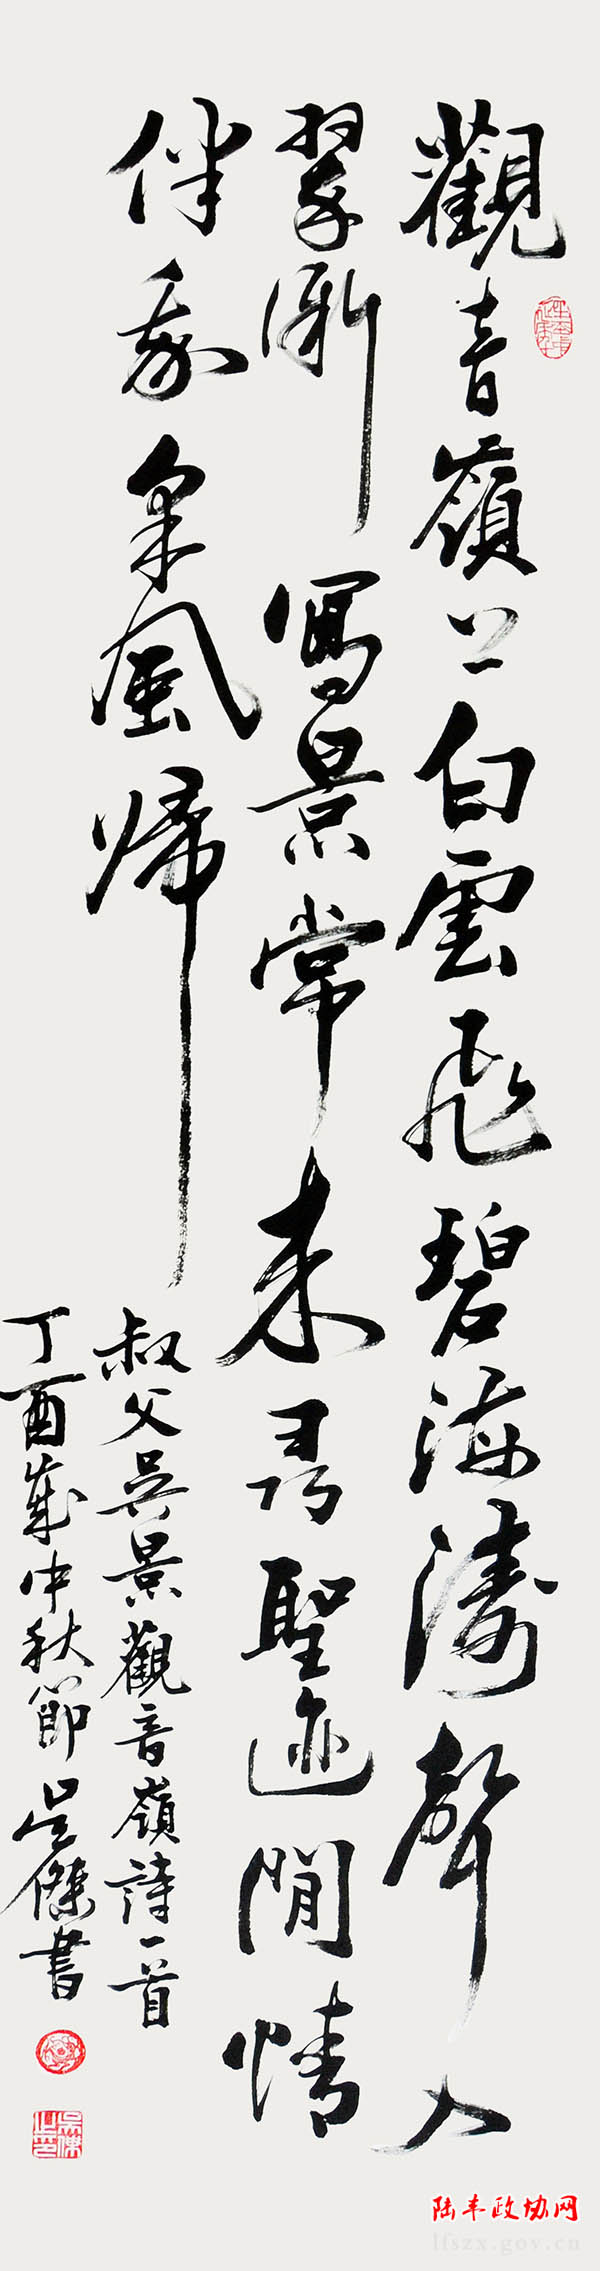 觀音嶺上白雲飛碧海濤聲入
翠微寫景常来尋聖迹閒情
伴我乘風歸
叔父吴景觀音嶺詩一首
丁酉歲中秋節吴傑書
吴傑之印
陆丰政协网
lfszx.gov.cn